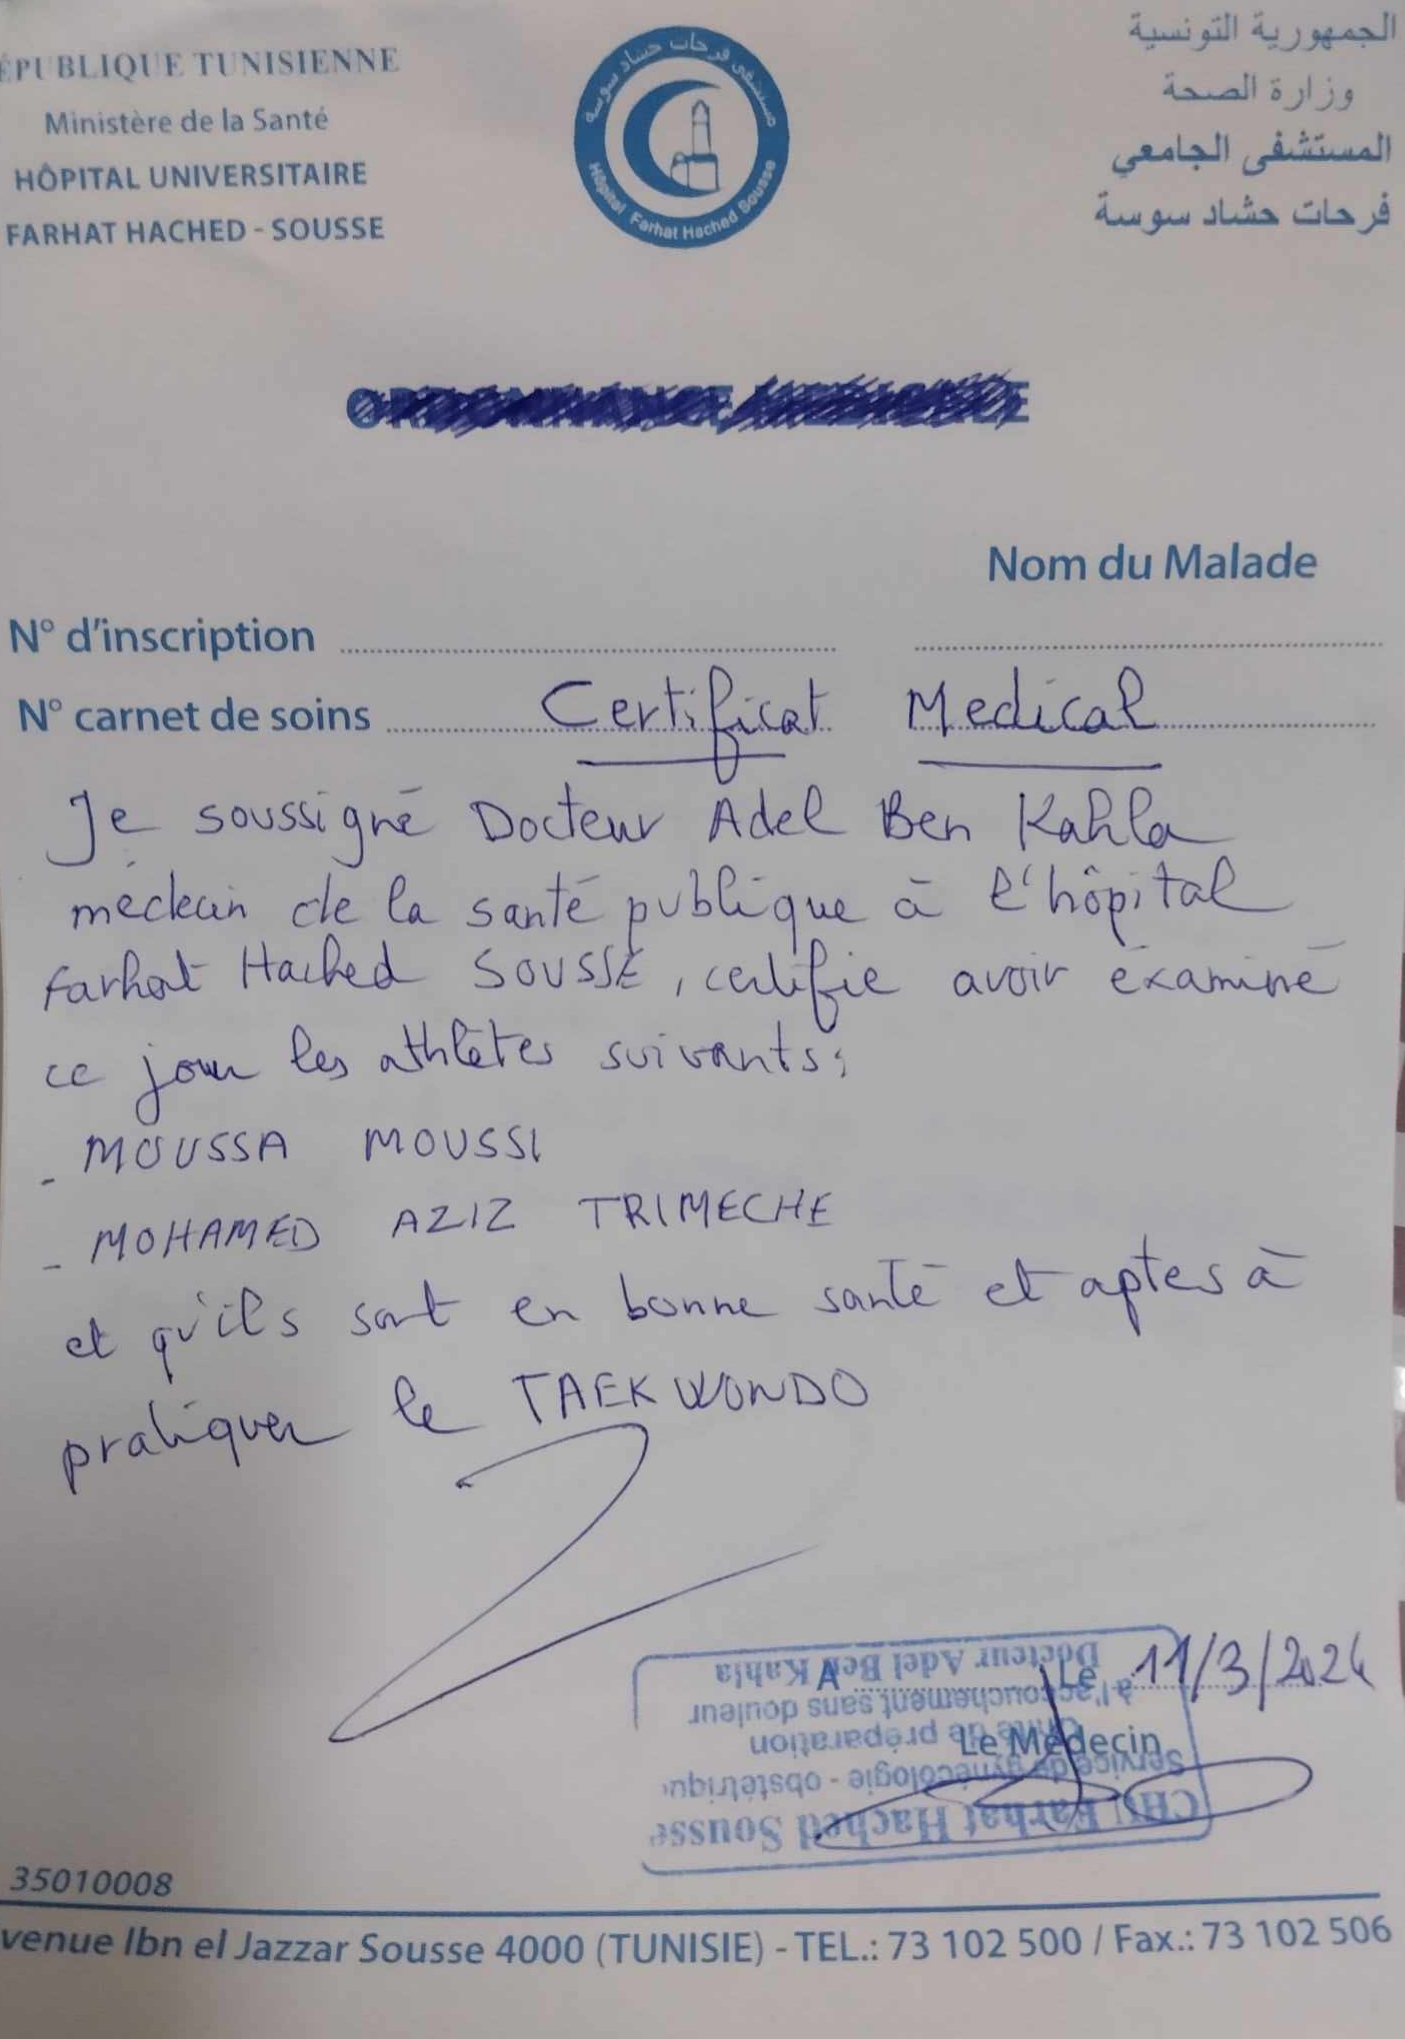 ÉPUBLIQUE TUNISIENNE
Ministère de la Santé
HÔPITAL UNIVERSITAIRE
FARHAT HACHED - SOUSSE
مستشفى فرحات حشاد سوسة
Hôpital Farhat Hached Sousse
الجمهورية التونسية
وزارة الصحة
المستشفى الجامعي
فرحات حشاد سوسة
Nom du Malade
N° d'inscription
N° carnet de soins Certificat Medical
Je soussigné Docteur Adel Ben Kahla
médecin de la santé publique à l'hôpital
Farhat Hached SOUSSE, certifie avoir examiné
ce jour les athlètes suivants:
- MOUSSA MOUSSI
- MOHAMED AZIZ TRIMECHE
et qu'ils sont en bonne santé et aptes à
pratiquer le TAEKWONDO
Le 11/3/2024
Le Médecin
CHU Farhat Hached Sousse
Service de gynécologie - obstétriqu
Unité de préparation
à l'accouchement sans douleur
Docteur Adel Ben Kahla
35010008
venue Ibn el Jazzar Sousse 4000 (TUNISIE) - TEL.: 73 102 500 / Fax.: 73 102 506